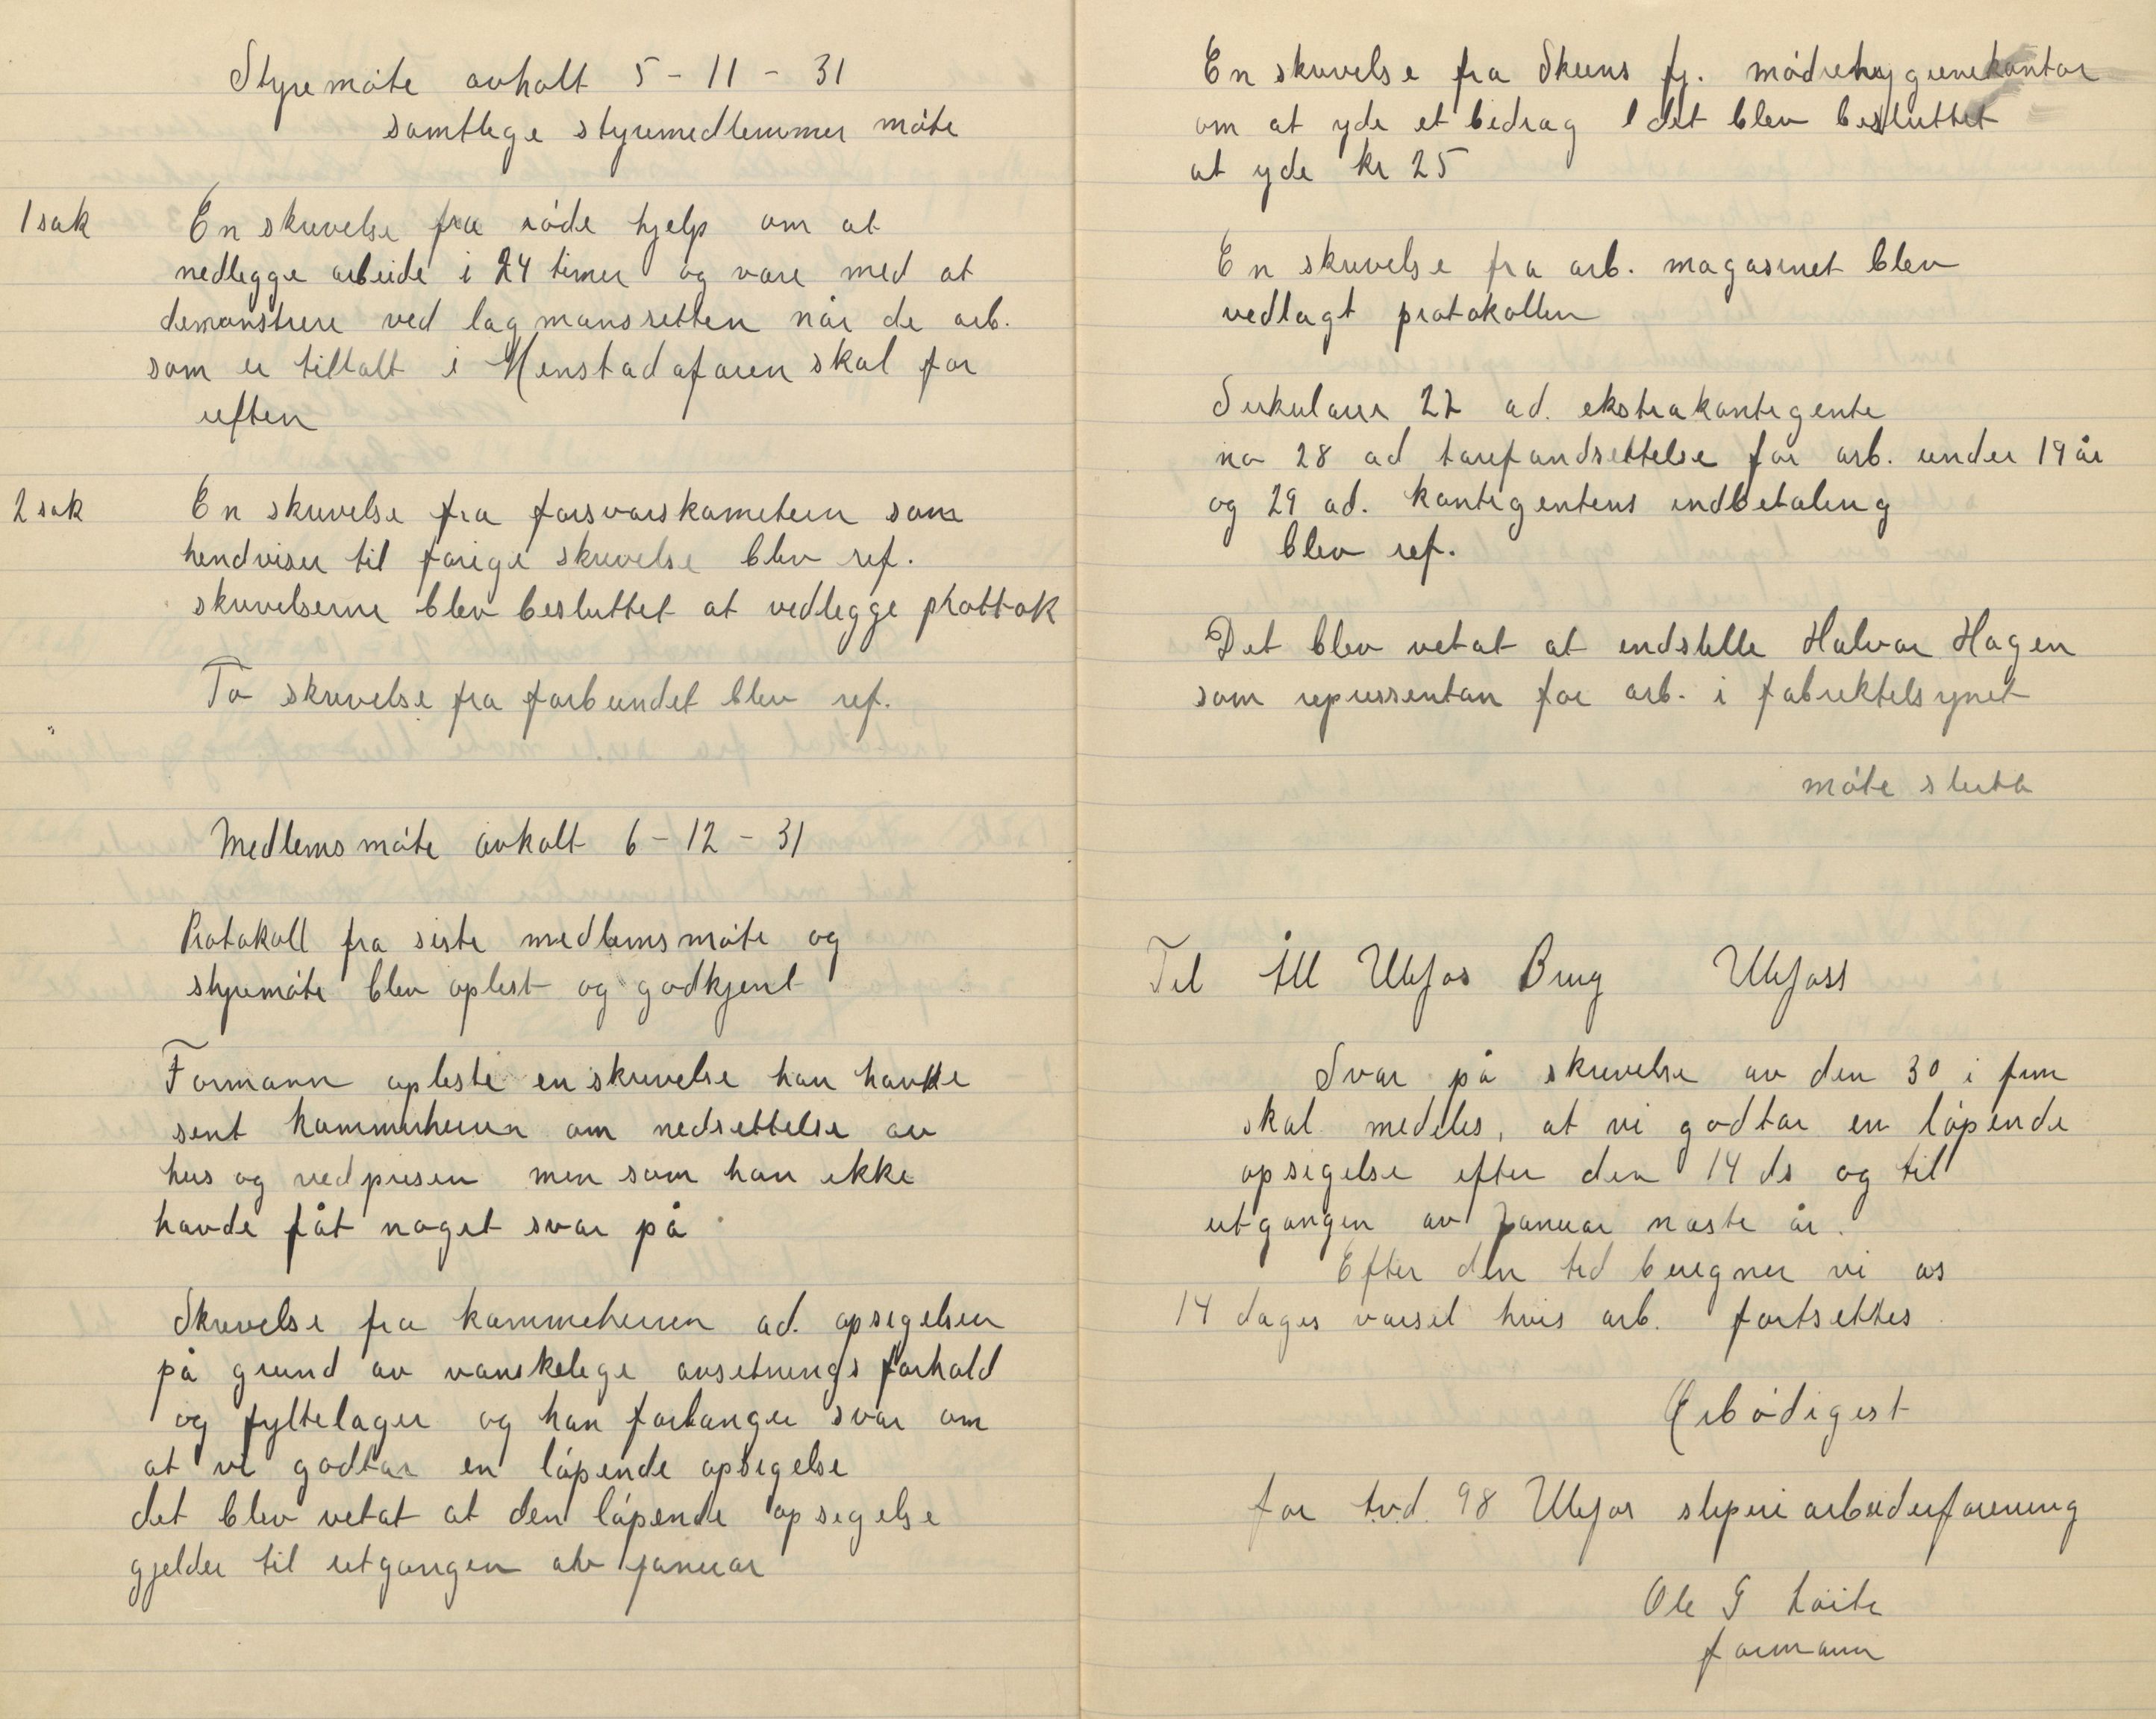 Styremöte avholt 5 - 11 - 31
samtlege styremedlemmer möte
1 sak En skrivelse fra röde hjelp om at
nedlegge arbeide i 24 timer og være med at
demonstrere ved lagmansretten når de arb.
som er tiltalt i Menstadafæren skal for
retten
2 sak En skrivelse fra forsvarskometeen som
hendviser til forige skrivelse blev ref.
skrivelserne blev besluttet at vedlegge prottok
To skrivelse fra forbundet blev ref.
Medlemsmöte avholt 6 - 12 - 31
Protokoll fra siste medlemsmöte og
styremöte blev oplest og godkjent
Formann opleste en skrivelse han havde
sent kammerherren om nedsettelse av
hus og vedprisen men som han ikke
havde fåt noget svar på
Skrivelse fra kammeherren ad. opsigelsen
på grund av vanskelege avsetnings forhold
og fyltelager og han forlanger svar om
at vi godtar en löpende opsigelse
det blev vetat at den löpende opsigelse
gjelder til utgangen av januar
En skrivelse fra Skiens fj. mödrehygienekontor
om at yde et bedrag det blev besluttet
at yde kr 25
En skrivelse fra arb. magasinet blev
vedlagt protokollen
Sirkulære 27 ad. ekstrakontigente
no 28 ad tarifandsettelse for arb. under 19 år
og 29 ad. kontigentens indbetaling
blev ref.
Det blev vetat at indstille Halvor Hagen
som repressentan for arb. i fabriktelsynet
möte slutt
Til Ulefos Brug Ulefoss
Svar på skrivelse av den 30 i fm
skal meddeles, at vi godtar en löpende
opsigelse efter den 14 ds og til
utgangen av Januar næste år.
Efter den tid beregner vi os
14 dages varsel hvis arb. fortsettes
Erbödigst
for avd. 98 Ulefos sliperiarbeiderforening
Ole G Löite
formann